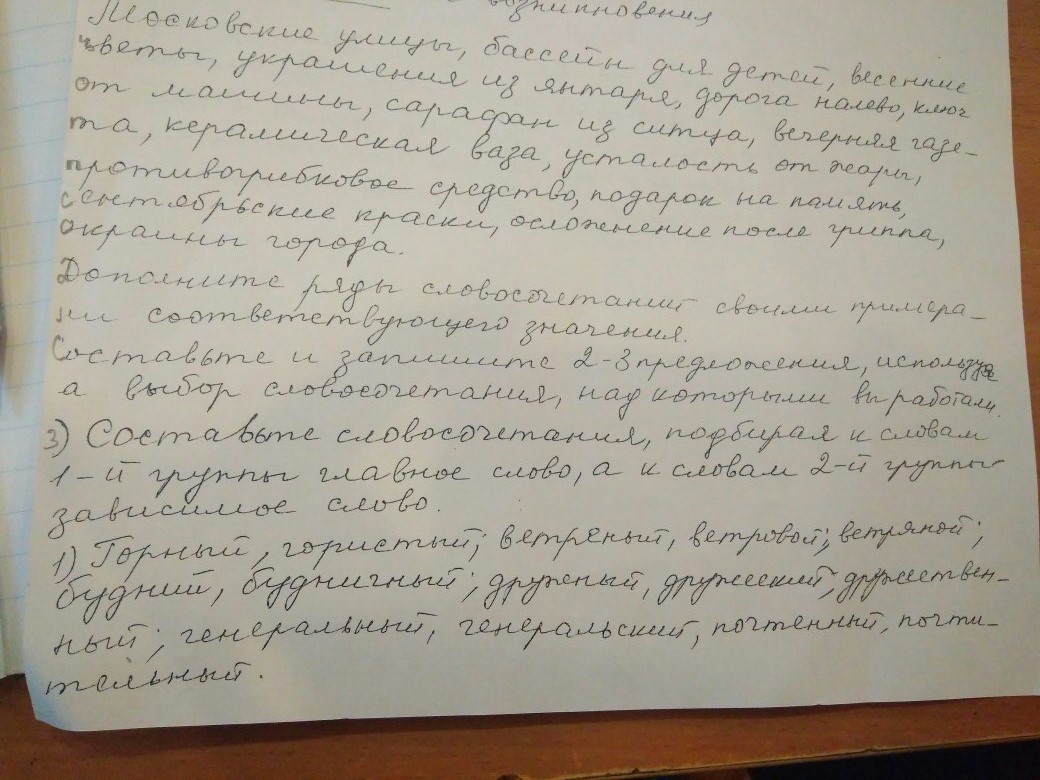 возникновения
Московские улицы, бассейн для детей, весенние
цветы, украшения из янтаря, дорога налево, ключ
от машины, сарафан из ситца, вечерняя газе-
та, керамическая ваза, усталость от жары,
противогрибковое средство, подарок на память,
сентябрьские краски, осложнение после гриппа,
окраины города.
Дополните ряды словосочетаний своими примера-
ми соответствующего значения.
Составьте и запишите 2-3 предложения, используя
а выбор словосочетания, над которыми вы работали.
3) Составьте словосочетания, подбирая к словам
1-й группы главное слово, а к словам 2-й группы
зависимое слово.
1) Горный, гористый; ветреный, ветровой; ветряной;
будний, будничный; дружный, дружеский, дружествен-
ный; генеральный, генеральский, почтенный, почти-
тельный.